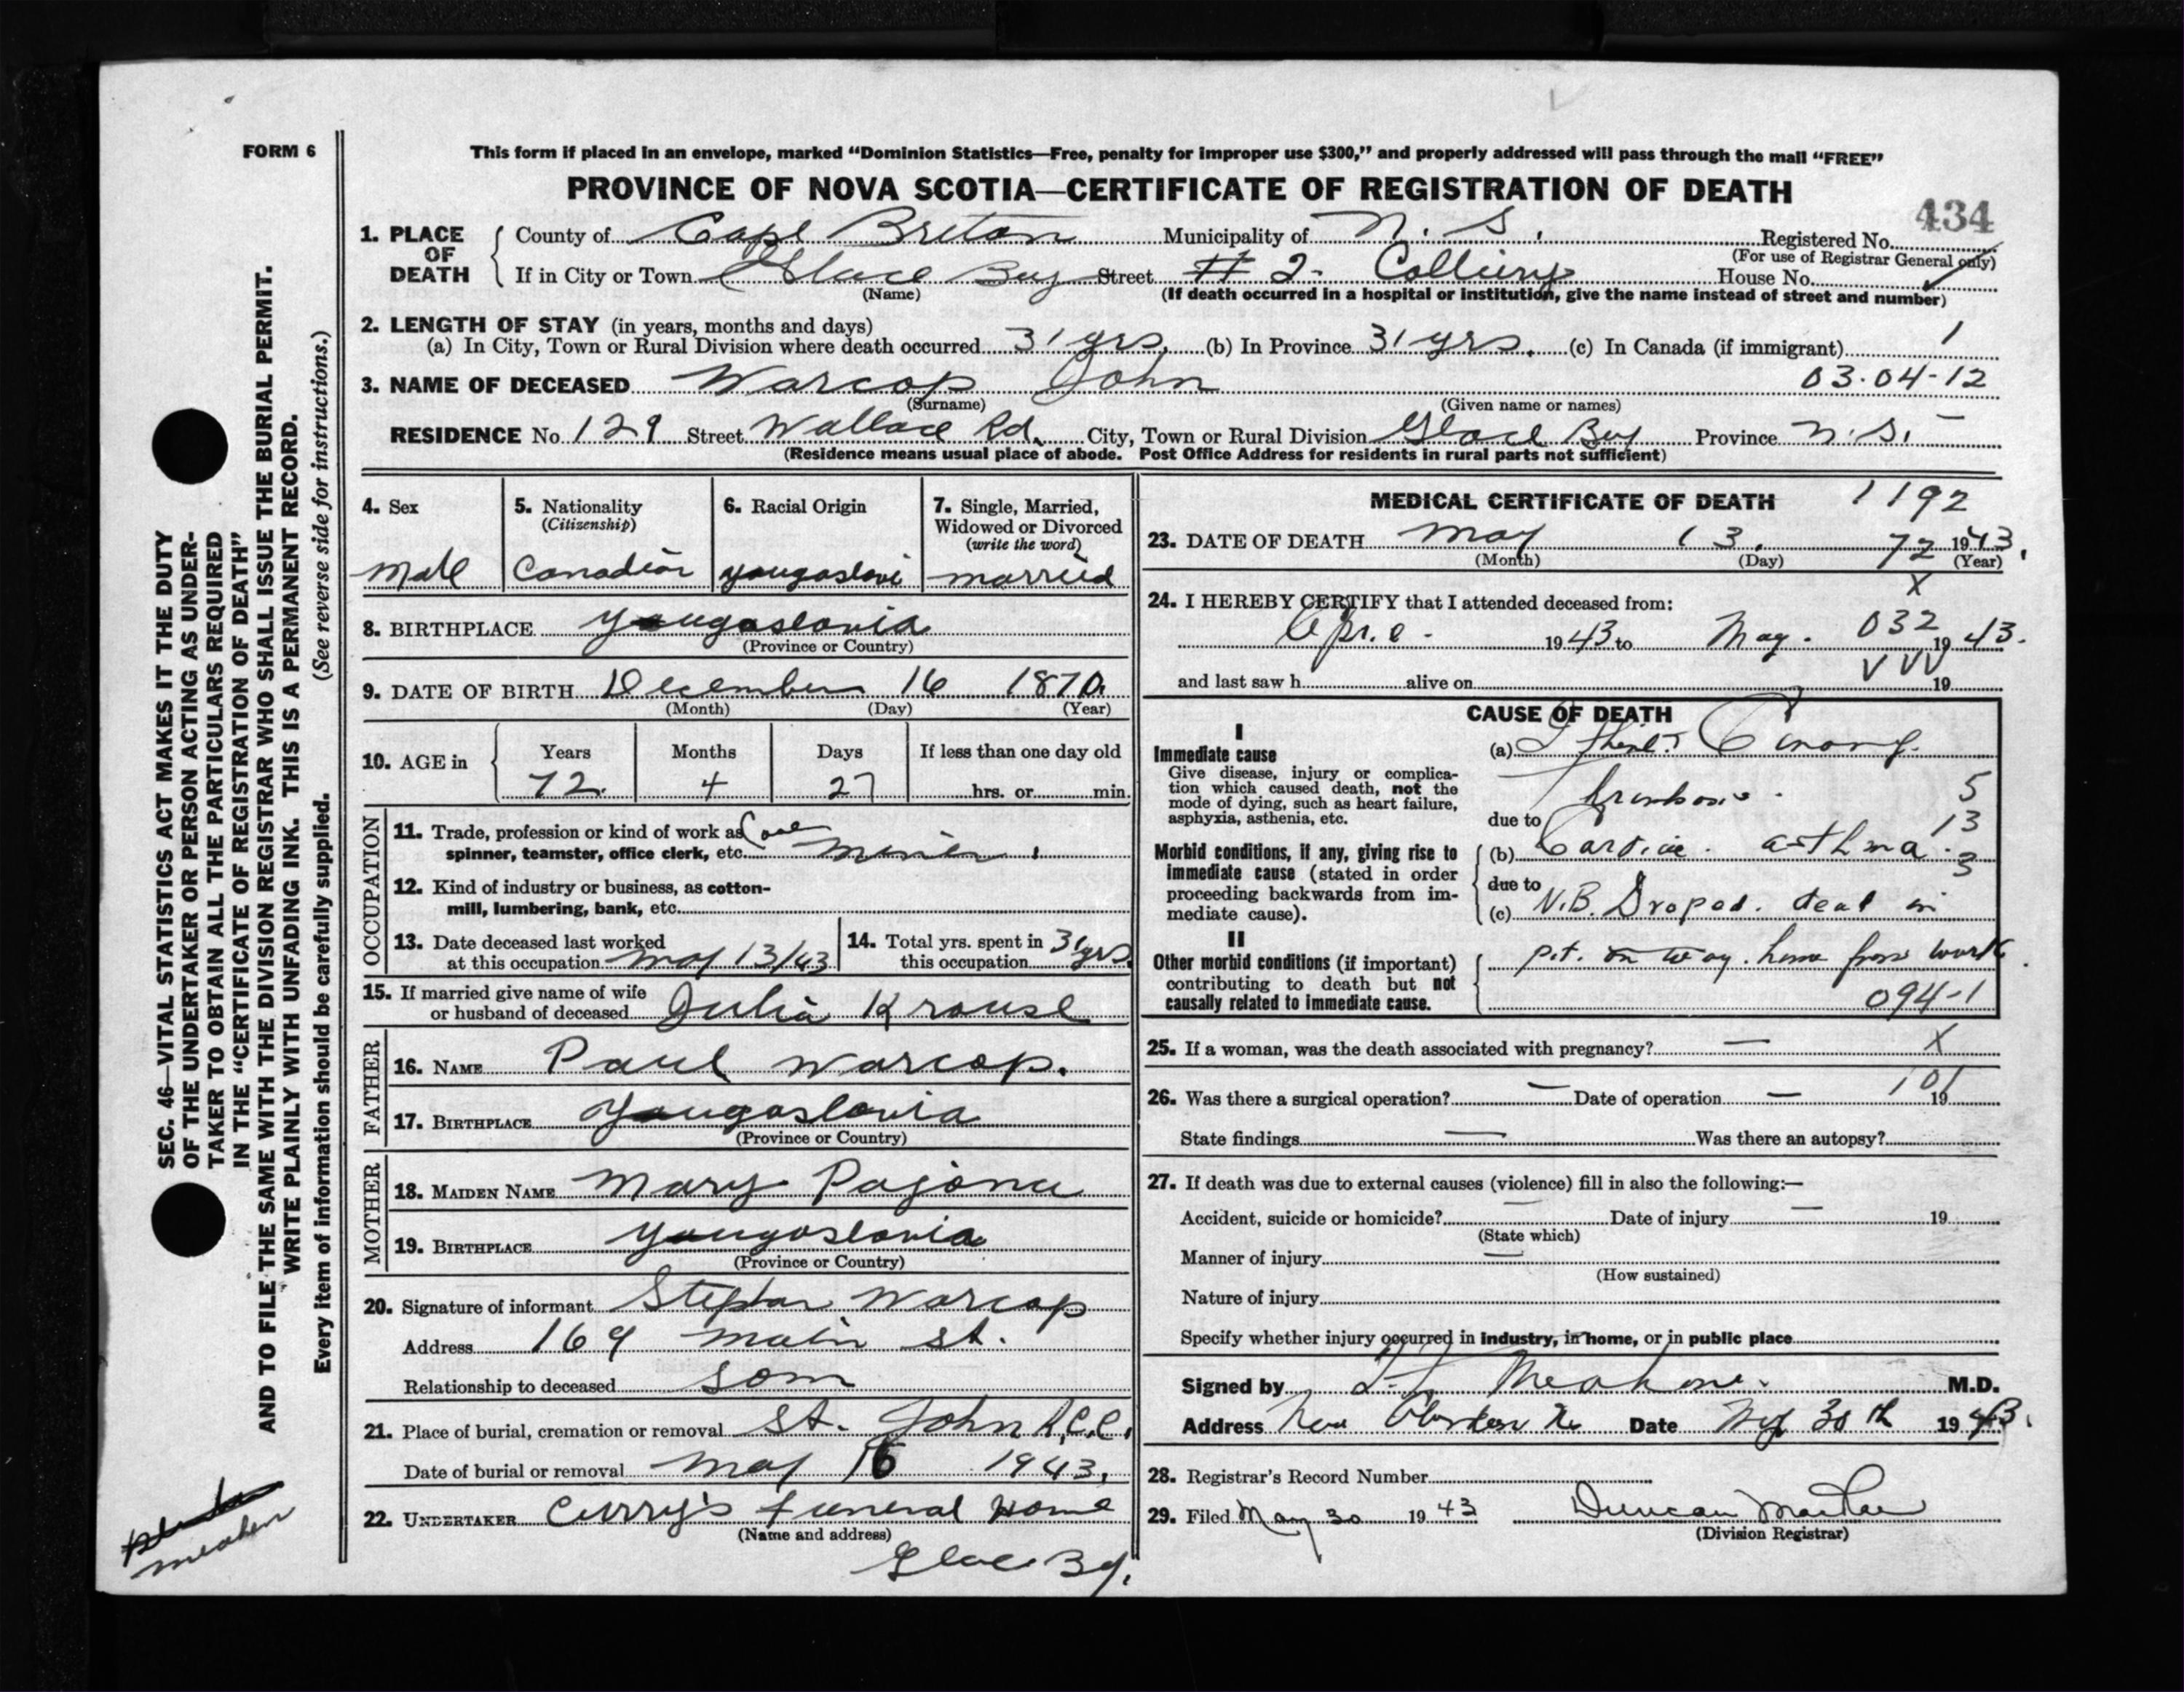 FORM 6
This form if placed in an envelope, marked “Dominion Statistics—Free, penalty for improper use $300,” and properly addressed will pass through the mail “FREE”
PROVINCE OF NOVA SCOTIA—CERTIFICATE OF REGISTRATION OF DEATH
434
1. PLACE OF DEATH County of Cape Breton Municipality of N. S. Registered No.
(For use of Registrar General only)
If in City or Town Glace Bay Street # 2 Colliery House No.
(Name) (If death occurred in a hospital or institution, give the name instead of street and number)
2. LENGTH OF STAY (in years, months and days)
(a) In City, Town or Rural Division where death occurred 31 yrs. (b) In Province 31 yrs. (c) In Canada (if immigrant) 1
3. NAME OF DECEASED Warcop John 03-04-12
(Surname) (Given name or names)
RESIDENCE No. 129 Street Wallace Rd. City, Town or Rural Division Glace Bay Province N.S.
(Residence means usual place of abode. Post Office Address for residents in rural parts not sufficient)
4. Sex
Male
5. Nationality
(Citizenship)
Canadian
6. Racial Origin
yougoslavi
7. Single, Married,
Widowed or Divorced
(write the word)
married
8. BIRTHPLACE yougoslavia
(Province or Country)
9. DATE OF BIRTH December 16 1870
(Month) (Day) (Year)
10. AGE in Years Months Days If less than one day old
72 4 27 hrs. or min.
OCCUPATION
11. Trade, profession or kind of work as Coal
spinner, teamster, office clerk, etc. miner
12. Kind of industry or business, as cotton-
mill, lumbering, bank, etc.
13. Date deceased last worked
at this occupation May 13/43
14. Total yrs. spent in
this occupation 31 yrs.
15. If married give name of wife
or husband of deceased Julia Krouse
FATHER
16. NAME Paul Warcop.
17. BIRTHPLACE Yougoslavia
(Province or Country)
MOTHER
18. MAIDEN NAME Mary Pajona
19. BIRTHPLACE yougoslavia
(Province or Country)
20. Signature of informant Stephan Warcop
Address 169 Main St.
Relationship to deceased son
21. Place of burial, cremation or removal St. John R.C.C.
Date of burial or removal May 16 1943.
22. UNDERTAKER Curry's Funeral Home
(Name and address)
Glace By.
MEDICAL CERTIFICATE OF DEATH 1192
23. DATE OF DEATH May 13. 72 1943.
(Month) (Day) (Year)
X
24. I HEREBY CERTIFY that I attended deceased from:
Apr. 1943 to May. 032 1943.
and last saw h alive on 19
CAUSE OF DEATH
I
Immediate cause
Give disease, injury or complica-
tion which caused death, not the
mode of dying, such as heart failure,
asphyxia, asthenia, etc.
(a) I think
5
due to 13
Morbid conditions, if any, giving rise to
immediate cause (stated in order
proceeding backwards from im-
mediate cause).
(b) Cardiac asthma. 3
due to
(c) N.B. Droped. dead in
II
Other morbid conditions (if important)
contributing to death but not
causally related to immediate cause.
pit. on way. home from work.
094-1
25. If a woman, was the death associated with pregnancy? — X
26. Was there a surgical operation? — Date of operation — 101 19
State findings — Was there an autopsy?
27. If death was due to external causes (violence) fill in also the following:—
Accident, suicide or homicide? — Date of injury — 19
(State which)
Manner of injury —
(How sustained)
Nature of injury
Specify whether injury occurred in industry, in home, or in public place
Signed by M.D.
Address New Date May 30th 1943.
28. Registrar's Record Number
29. Filed May 30 1943 Duncan
(Division Registrar)
SEC. 46—VITAL STATISTICS ACT MAKES IT THE DUTY
OF THE UNDERTAKER OR PERSON ACTING AS UNDER-
TAKER TO OBTAIN ALL THE PARTICULARS REQUIRED
IN THE “CERTIFICATE OF REGISTRATION OF DEATH”
AND TO FILE THE SAME WITH THE DIVISION REGISTRAR WHO SHALL ISSUE THE BURIAL PERMIT.
WRITE PLAINLY WITH UNFADING INK. THIS IS A PERMANENT RECORD.
Every item of information should be carefully supplied. (See reverse side for instructions.)